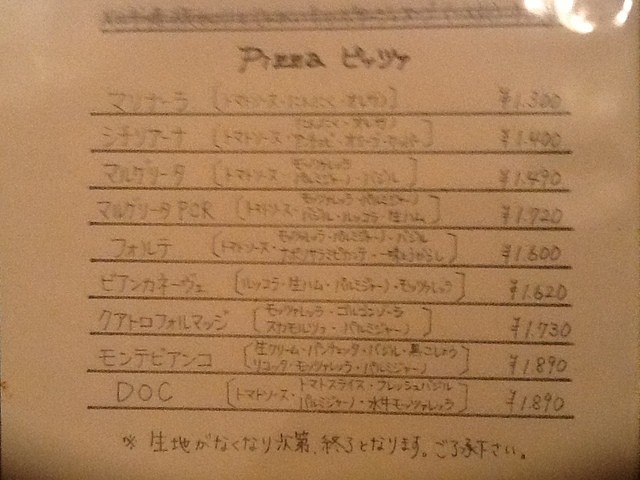 Pizza ピッツァ
マリナーラ (トマトソース・にんにく・オレガノ) ¥1.300
にんにく・オレガノ
シチリアーナ (トマトソース・アンチョビ・オリーブ・ケッパー) ¥1.400
モッツァレッラ
マルゲリータ (トマトソース・パルミジャーノ・バジル) ¥1.490
モッツァレッラ・パルミジャーノ
マルゲリータPCR (トマトソース・バジル・ルッコラ・生ハム) ¥1.720
モッツァレッラ・パルミジャーノ・バジル
フォルテ (トマトソース・ナポリサラミピカンテ・一味とうがらし) ¥1.600
ビアンカネーヴェ (ルッコラ・生ハム・パルミジャーノ・モッツァレッラ) ¥1.620
モッツァレッラ・ゴルゴンゾーラ
クアトロフォルマッジ (スカモルツァ・パルミジャーノ) ¥1.730
生クリーム・パンチェッタ・バジル・黒こしょう
モンテビアンコ (リコッタ・モッツァレッラ・パルミジャーノ) ¥1.890
トマトスライス・フレッシュバジル
DOC (トマトソース・パルミジャーノ・水牛モッツァレッラ) ¥1.890
※ 生地がなくなり次第、終了となります。ご了承下さい。